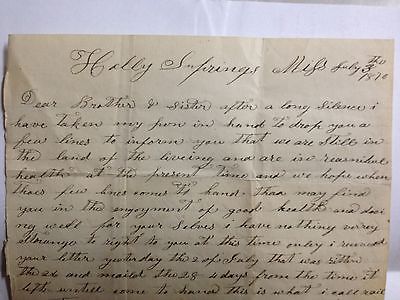 Holly Springs Miss July the 3
1876
Dear Brother & Sister after a long Silence i
have taken my pen in hand to drop you a
few lines to inform you that we are still in
the land of the liveing and are in reasnibal
health at the present time and we hope when
thees few lines comes to hand thaa may find
you in the enjoyment of good health and doi
ng well for your Selves i have nothing very
strange to right to you at this time only i receved
your letter yesterday the 2 of July that was riten
the 26 and mailed the 28 4 days from the time it
left untill come to hand this is what i call rail